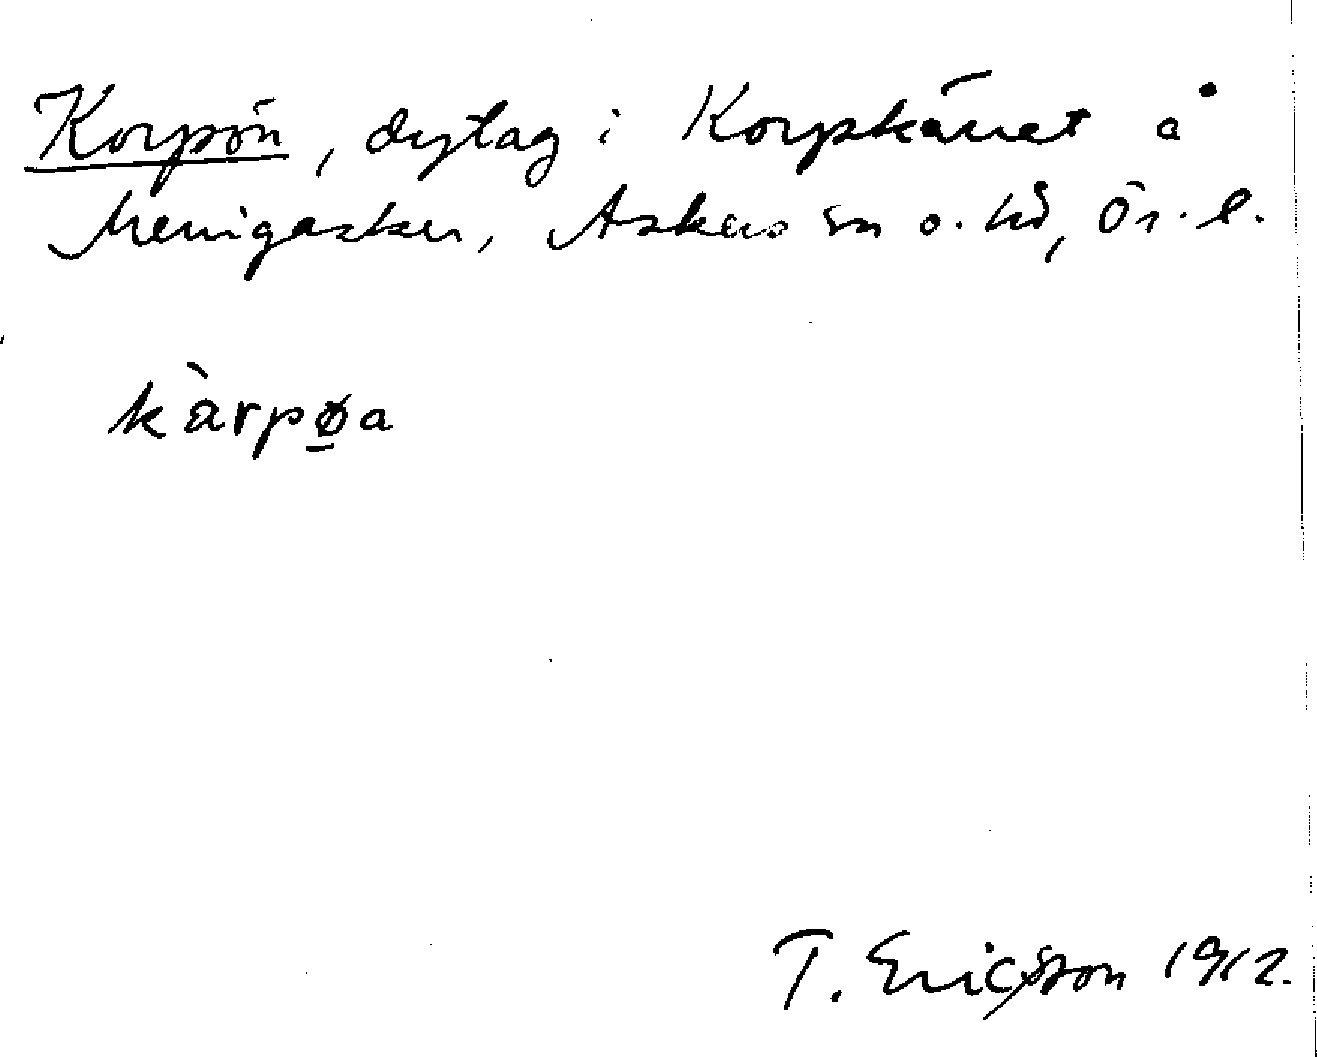 Korpön, dytag i Korpkärret å
Menigasker, Askers sn o. hd, Ör. l.
kàrpøa
T. Ericsson 1912.